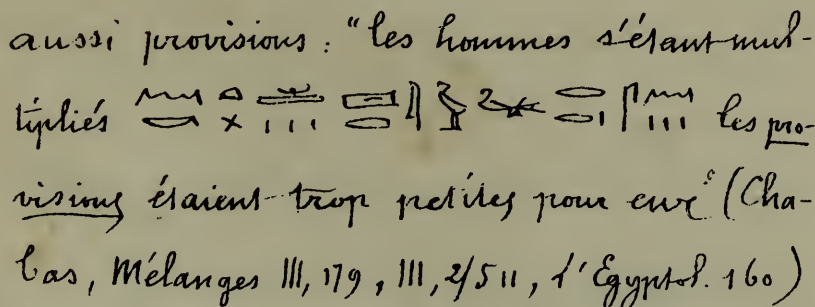 aussi provisions : "les hommes s'étant mul-
tipliés les pro-
visions étaient trop petites pour eux" (Cha-
bas, Mélanges III, 179, III, 2/511, l'Egyptol. 160)